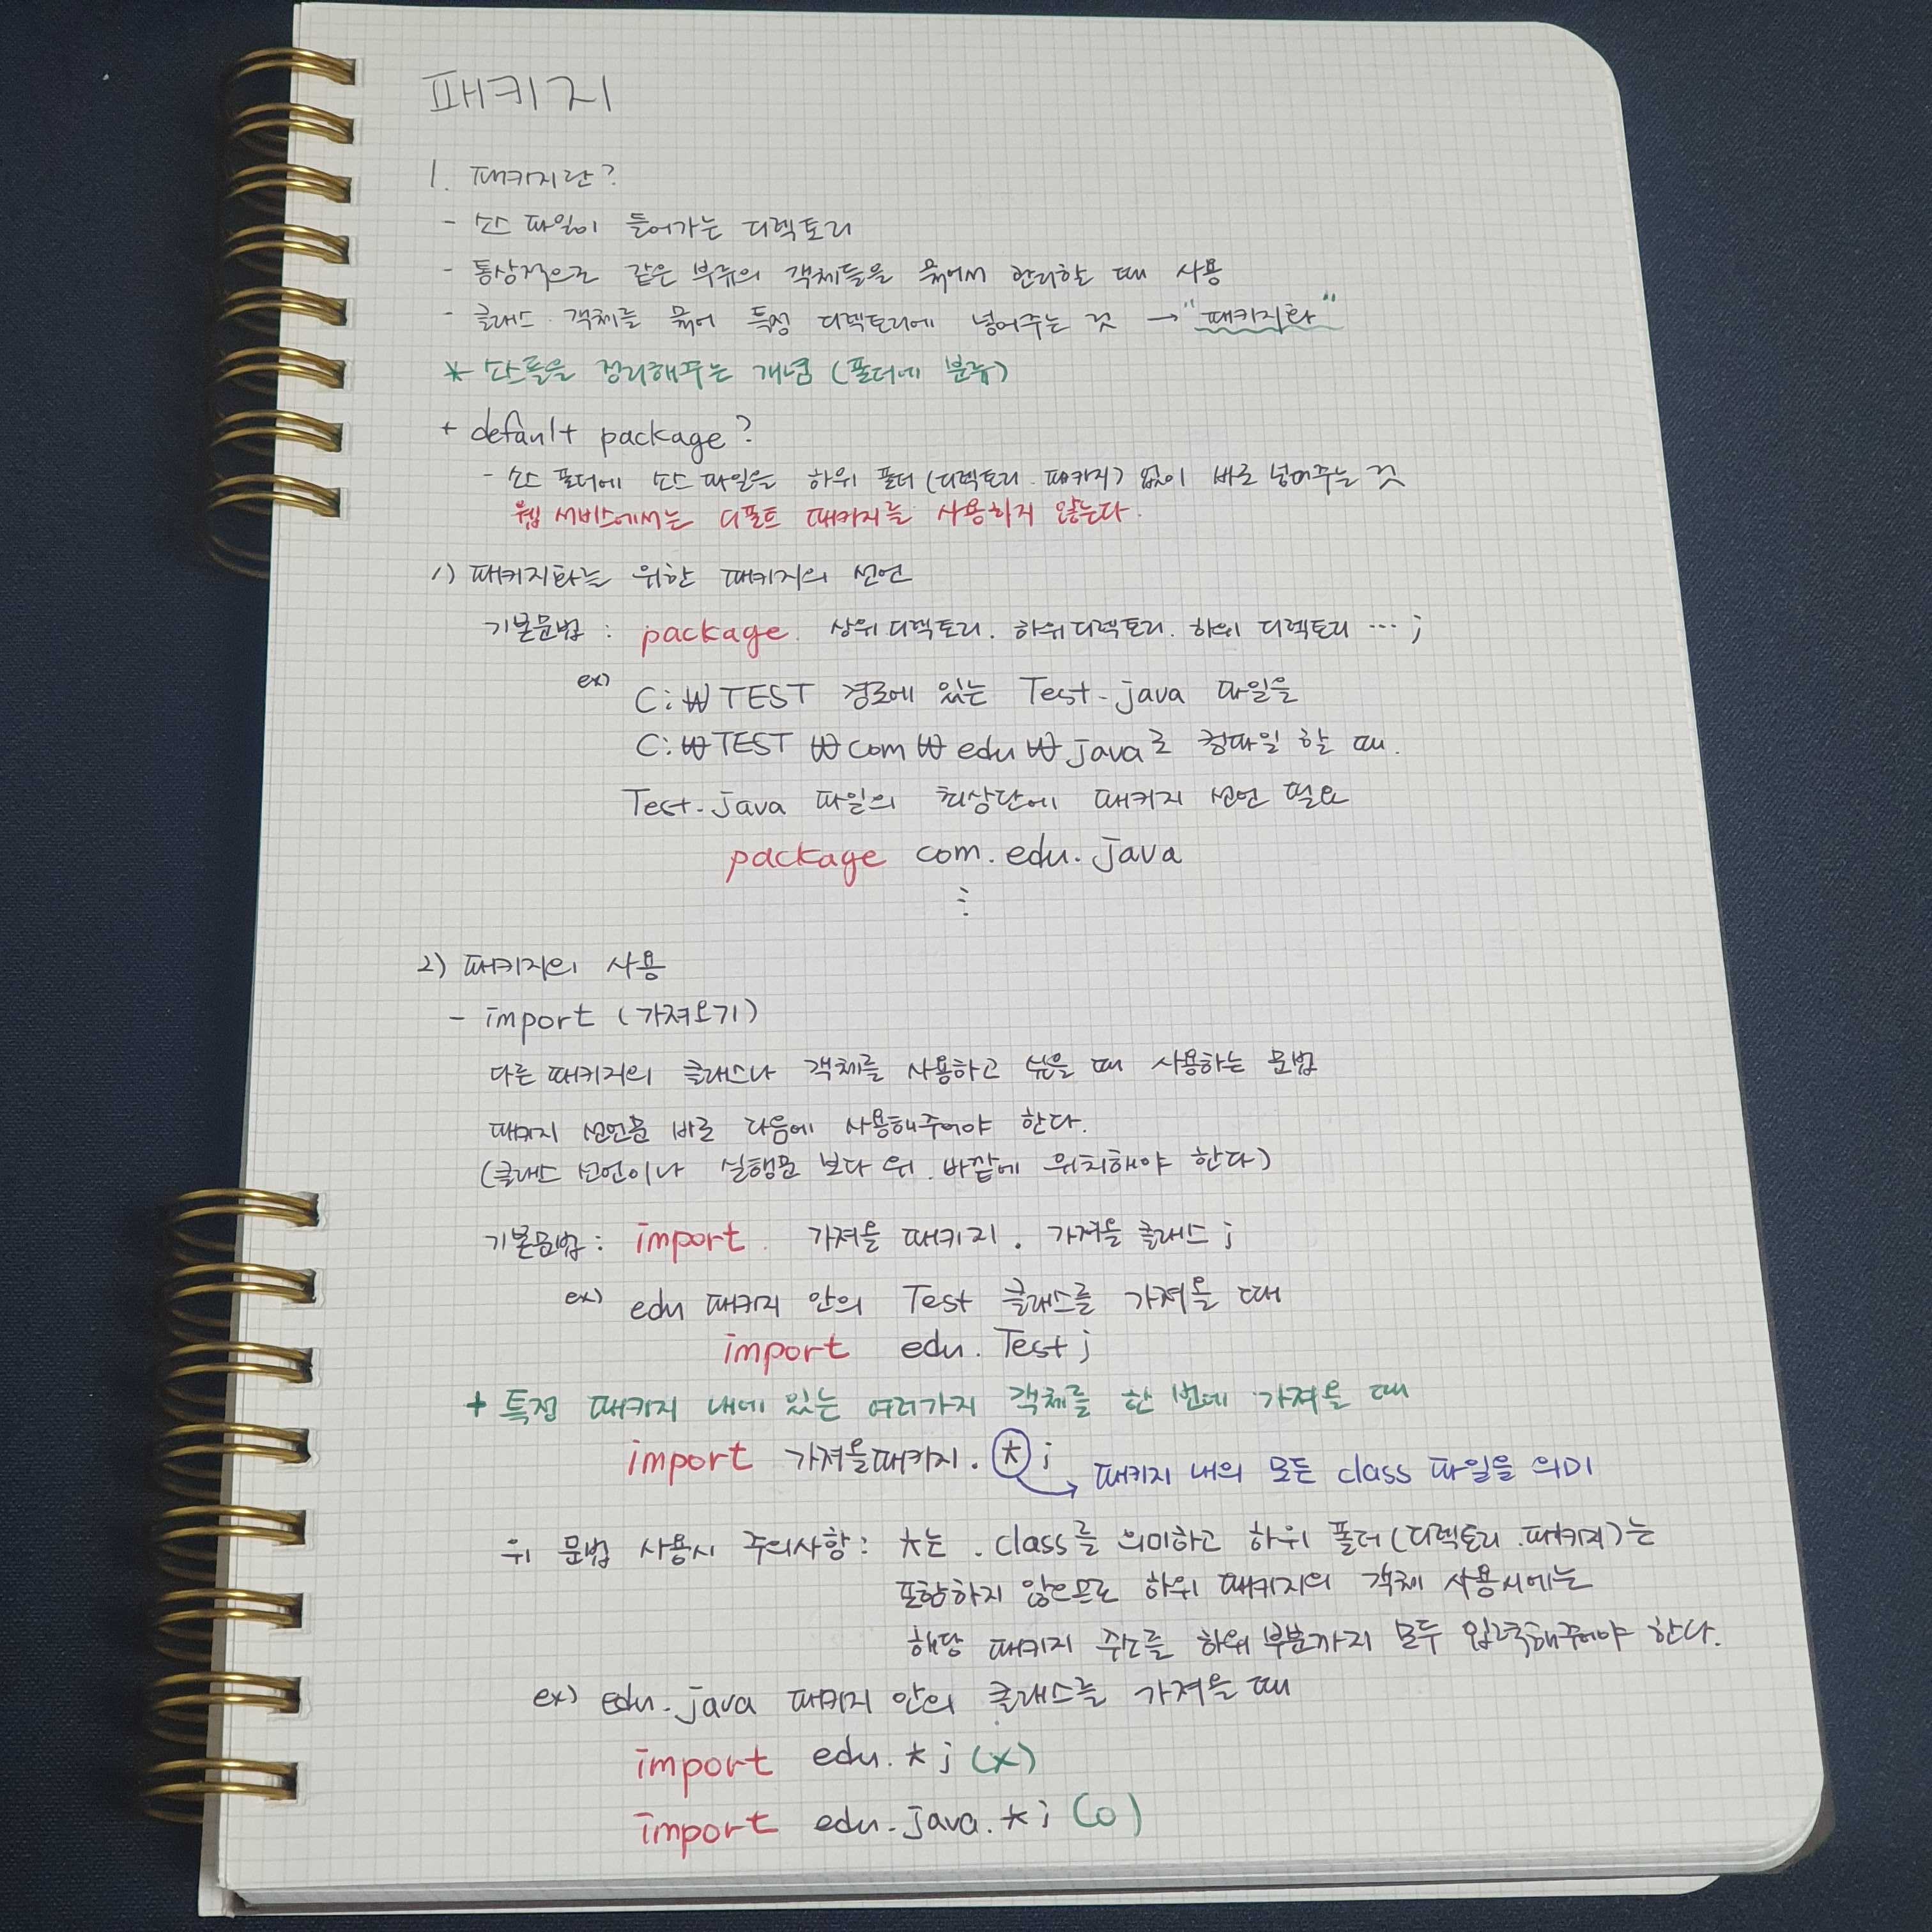 패키지
1. 패키지란?
- 소스 파일이 들어가는 디렉토리
- 통상적으로 같은 부류의 객체들을 묶어서 관리할 때 사용
- 클래스. 객체를 묶어 특정 디렉토리에 넣어주는 것 → "패키지화"
* 소스들을 정리해주는 개념 (폴더에 분류)
+ default package?
- 소스 폴더에 소스 파일을 하위 폴더 (디렉토리. 패키지) 없이 바로 넣어주는 것
웹 서비스에서는 디폴트 패키지를 사용하지 않는다.
1) 패키지화를 위한 패키지의 선언
기본문법 : package. 상위 디렉토리. 하위 디렉토리. 하위 디렉토리 ... ;
ex) C:₩TEST 경로에 있는 Test.java 파일을
C:₩TEST₩com₩edu₩java로 컴파일 할 때.
Test.java 파일의 최상단에 패키지 선언 필요
package com.edu.java
⋮
2) 패키지의 사용
- import (가져오기)
다른 패키지의 클래스나 객체를 사용하고 싶을 때 사용하는 문법
패키지 선언문 바로 다음에 사용해주어야 한다.
(클래스 선언이나 실행문 보다 위. 바깥에 위치해야 한다)
기본문법 : import. 가져올 패키지. 가져올 클래스;
ex) edu 패키지 안의 Test 클래스를 가져올 때
import edu.Test;
+ 특정 패키지 내에 있는 여러가지 객체를 한 번에 가져올 때
import 가져올패키지.*; → 패키지 내의 모든 class 파일을 의미
위 문법 사용시 주의사항 : *는 .class를 의미하고 하위 폴더(디렉토리.패키지)는
포함하지 않으므로 하위 패키지의 객체 사용시에는
해당 패키지 주소를 하위 부분까지 모두 입력해주어야 한다.
ex) edu.java 패키지 안의 클래스를 가져올 때
import edu.*; (x)
import edu.java.*; (o)